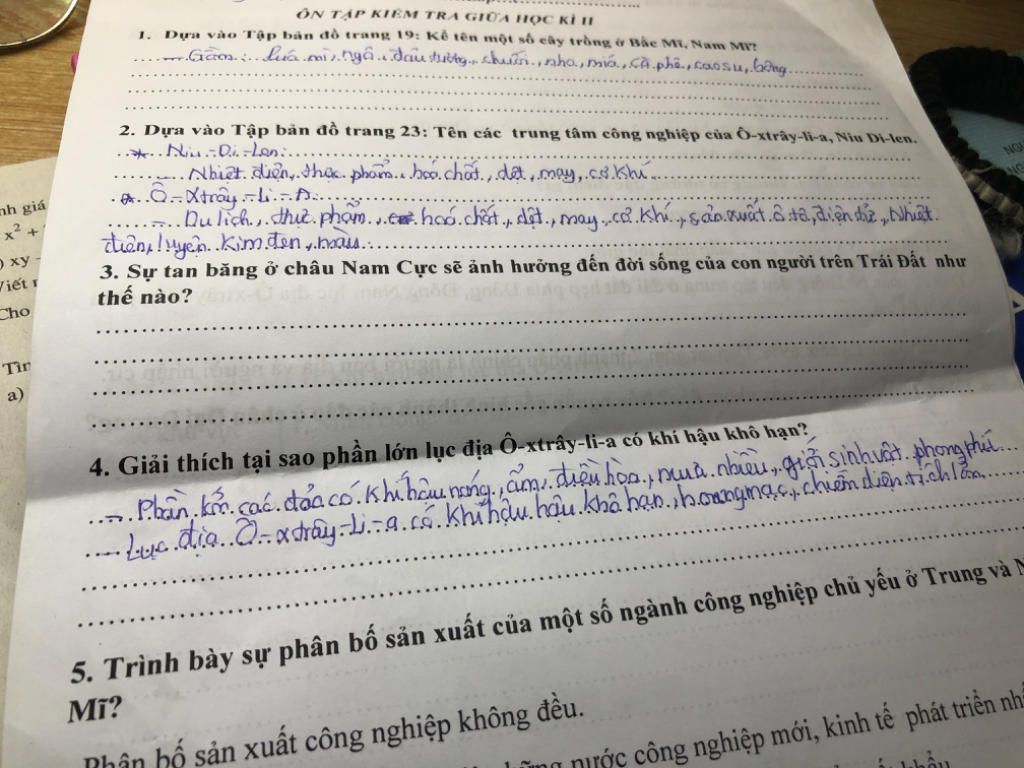 ÔN TẬP KIỂM TRA GIỮA HỌC KÌ II
1. Dựa vào Tập bản đồ trang 19: Kể tên một số cây trồng ở Bắc Mĩ, Nam Mĩ?
- Gồm: Lúa mì, ngô, đậu tương, chuối, nho, mía, cà phê, cao su, bông
2. Dựa vào Tập bản đồ trang 23: Tên các trung tâm công nghiệp của Ô-xtrây-li-a, Niu Di-len.
* Niu-Di-Len:
- Nhiệt điện, thực phẩm, hoá chất, dệt, may, cơ khí
* Ô-xtrây-Li-A:
- Du lịch, thực phẩm, hoá chất, dệt, may, cơ khí, sản xuất ô tô, điện tử, Nhiệt
điện, luyện kim đen, màu
3. Sự tan băng ở châu Nam Cực sẽ ảnh hưởng đến đời sống của con người trên Trái Đất như
thế nào?
4. Giải thích tại sao phần lớn lục địa Ô-xtrây-li-a có khí hậu khô hạn?
- Phần lớn các đảo có khí hậu nóng, ẩm, điều hòa, mưa nhiều, giới sinh vật phong phú
- Lục địa Ô-xtrây-Li-a có khí hậu hậu khô hạn, hoang mạc, chiếm diện tích lớn
5. Trình bày sự phân bố sản xuất của một số ngành công nghiệp chủ yếu ở Trung và N
Mĩ?
Phân bố sản xuất công nghiệp không đều.
những nước công nghiệp mới, kinh tế phát triển nhấ
nh giá
x² +
) xy -
Viết
Cho
Tìn
a)